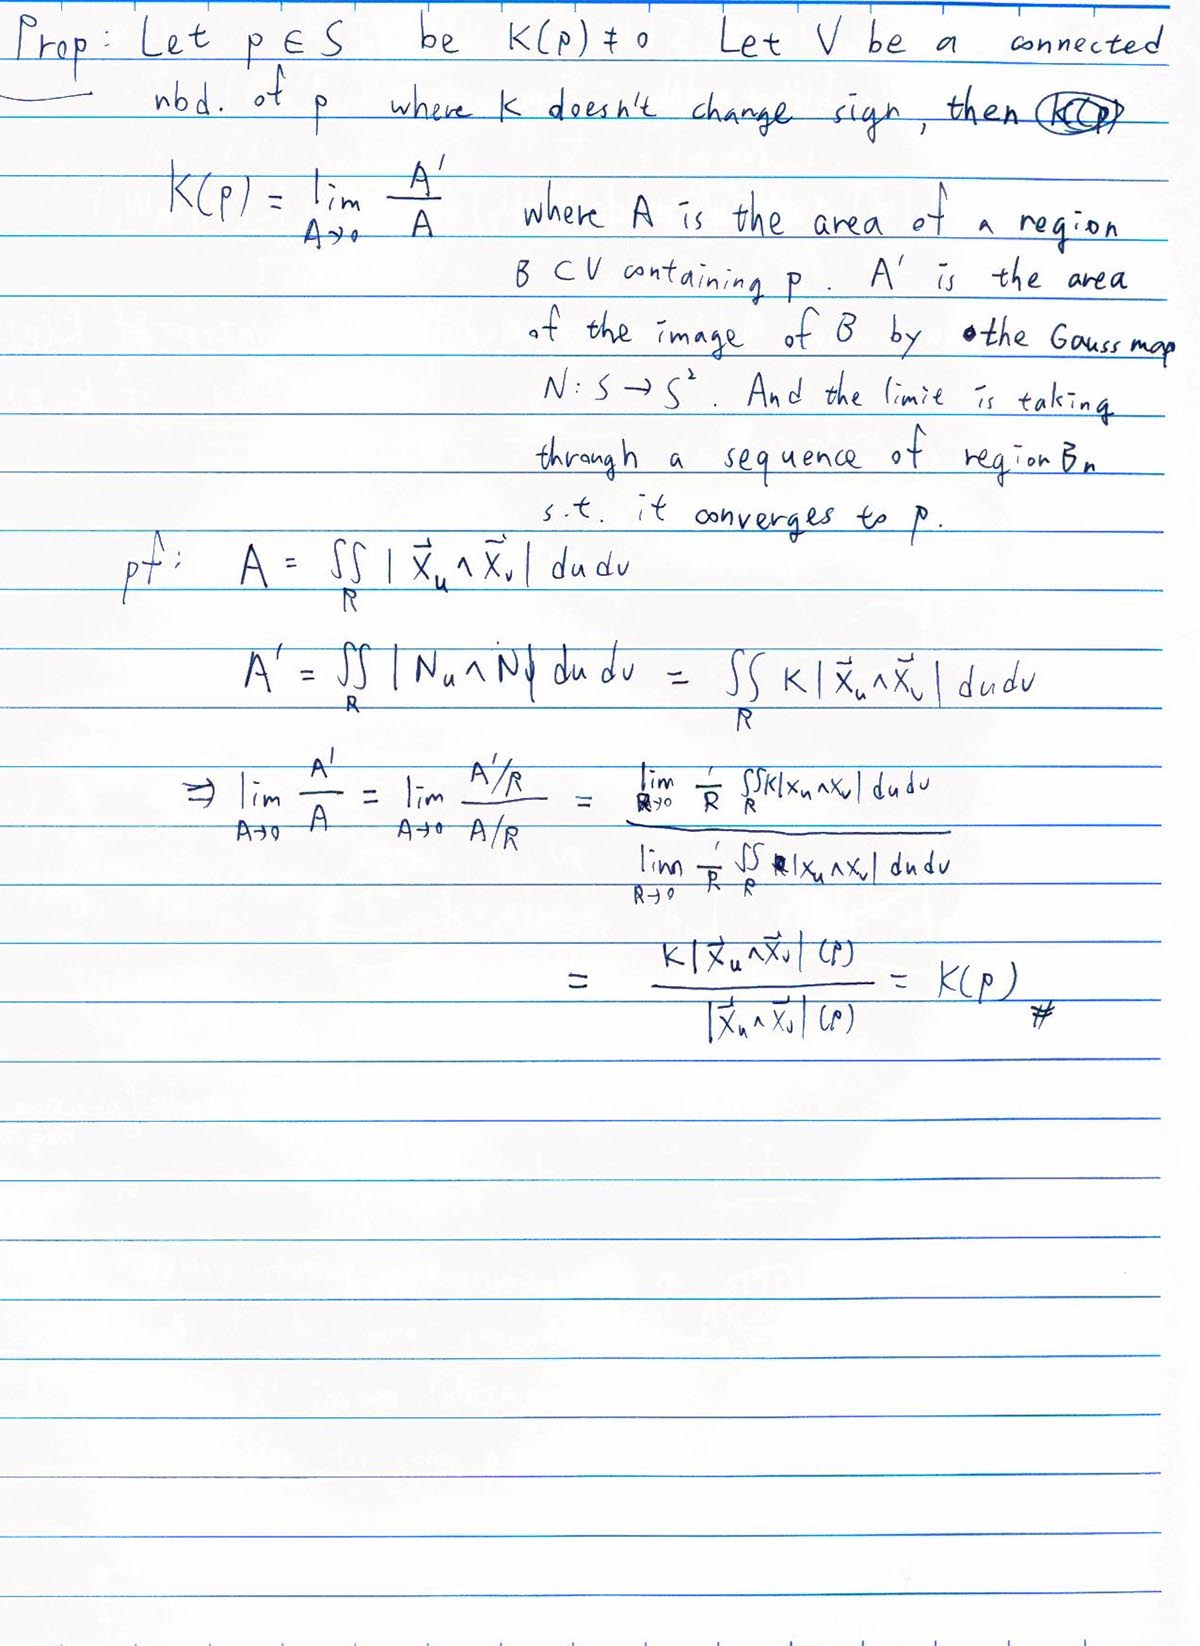 Prop: Let p ∈ S be K(p) ≠ 0 Let V be a connected
nbd. of p where K doesn't change sign, then
K(p) = lim_{A→0} A'/A where A is the area of a region
B ⊂ V containing p. A' is the area
of the image of B by the Gauss map
N: S → S². And the limit is taking
through a sequence of region Bn
s.t. it converges to p.
pf: A = ∬_R |X⃗_u ∧ X⃗_v| du dv
A' = ∬_R |N_u ∧ N_v| du dv = ∬_R K |X⃗_u ∧ X⃗_v| du dv
⇒ lim_{A→0} A'/A = lim_{A→0} (A'/R)/(A/R) = (lim_{R→0} 1/R ∬_R K|X_u ∧ X_v| du dv)/(lim_{R→0} 1/R ∬_R |X_u ∧ X_v| du dv)
= (K |X⃗_u ∧ X⃗_v| (p))/(|X⃗_u ∧ X⃗_v| (p)) = K(p) #